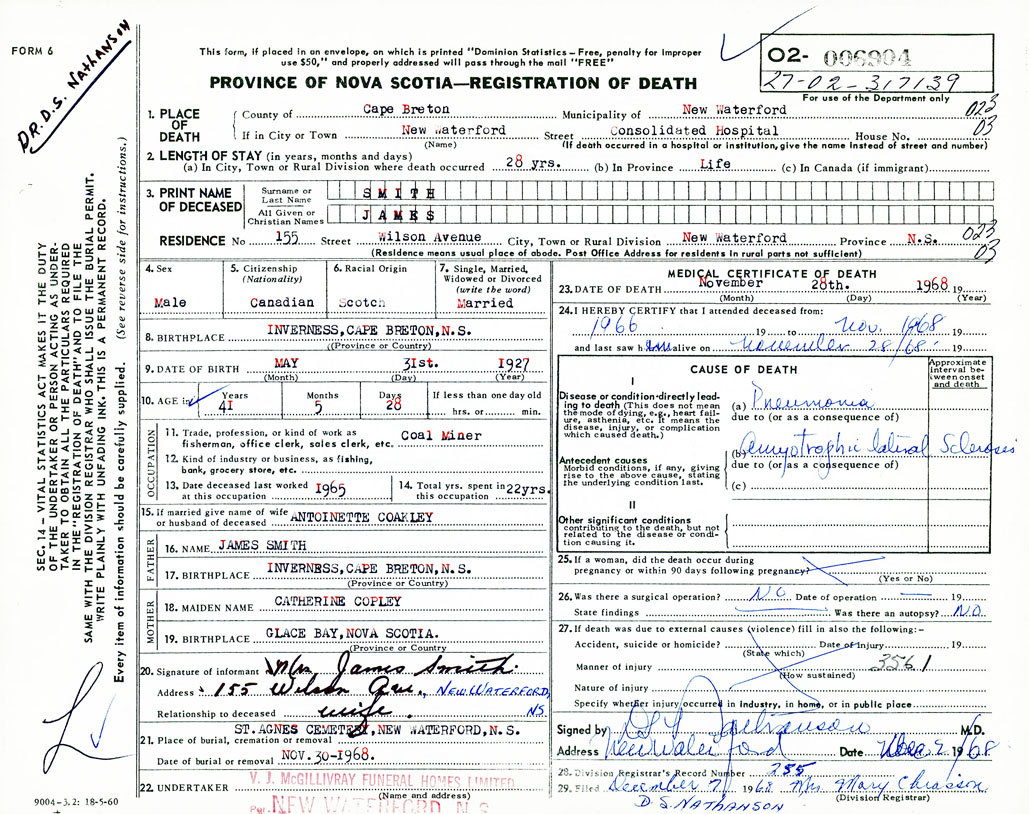 FORM 6
DR. D.S. NATHANSON
This form, if placed in an envelope, on which is printed "Dominion Statistics – Free, penalty for improper
use $50," and properly addressed will pass through the mail "FREE"
PROVINCE OF NOVA SCOTIA—REGISTRATION OF DEATH
O2- 006904
27-02-317139
For use of the Department only
1. PLACE OF DEATH
County of Cape Breton Municipality of New Waterford 023
If in City or Town New Waterford Street Consolidated Hospital House No. 03
(Name) (If death occurred in a hospital or institution, give the name instead of street and number)
2. LENGTH OF STAY (in years, months and days)
(a) In City, Town or Rural Division where death occurred 28 yrs. (b) In Province Life (c) In Canada (if immigrant)
3. PRINT NAME OF DECEASED
Surname or Last Name SMITH
All Given or Christian Names JAMES
RESIDENCE No 155 Street Wilson Avenue City, Town or Rural Division New Waterford Province N.S. 023
03
(Residence means usual place of abode. Post Office Address for residents in rural parts not sufficient)
4. Sex
Male
5. Citizenship
(Nationality)
Canadian
6. Racial Origin
Scotch
7. Single, Married,
Widowed or Divorced
(write the word)
Married
8. BIRTHPLACE INVERNESS,CAPE BRETON,N.S.
((Province or Country)
9. DATE OF BIRTH MAY 31st. 1927
(Month) (Day) (Year)
10. AGE in
Years Months Days If less than one day old
41 5 28 hrs. or min.
OCCUPATION
11. Trade, profession, or kind of work as
fisherman, office clerk, sales clerk, etc. Coal Miner
12. Kind of industry or business, as fishing,
bank, grocery store, etc.
13. Date deceased last worked
at this occupation 1965
14. Total yrs. spent in
this occupation 22yrs.
15. If married give name of wife
or husband of deceased ANTOINETTE COAKLEY
FATHER
16. NAME JAMES SMITH
17. BIRTHPLACE INVERNESS,CAPE BRETON,N.S.
(Province or Country)
MOTHER
18. MAIDEN NAME CATHERINE COPLEY
19. BIRTHPLACE GLACE BAY,NOVA SCOTIA.
(Province or Country)
20. Signature of informant Mrs. James Smith.
Address 155 Wilson Ave., NEW WATERFORD,
Relationship to deceased wife. NS.
ST.AGNES CEMETERY,NEW WATERFORD,N.S.
21. Place of burial, cremation or removal
Date of burial or removal NOV.30-1968.
V. J. McGILLIVRAY FUNERAL HOMES LIMITED
22. UNDERTAKER
(Name and address)
Per. NEW WATERFORD, N.S.
MEDICAL CERTIFICATE OF DEATH
23. DATE OF DEATH November 28th. 1968 19
(Month) (Day) (Year)
24. I HEREBY CERTIFY that I attended deceased from:
1966 19 to Nov. 1968
and last saw him alive on November 28/68 19
CAUSE OF DEATH
Approximate
interval be-
tween onset
and death
I
Disease or condition directly lead-
ing to death (This does not mean
the mode of dying, e.g., heart fail-
ure, asthenia, etc. It means the
disease, injury, or complication
which caused death.)
(a) Pneumonia
due to (or as a consequence of)
(b) Amyotrophic lateral Sclerosis
Antecedent causes
Morbid conditions, if any, giving
rise to the above cause, stating
the underlying condition last.
due to (or as a consequence of)
(c)
II
Other significant conditions
contributing to the death, but not
related to the disease or condi-
tion causing it.
25. If a woman, did the death occur during
pregnancy or within 90 days following pregnancy?
(Yes or No)
26. Was there a surgical operation? NO Date of operation 19
State findings Was there an autopsy? N.O.
27. If death was due to external causes (violence) fill in also the following:–
Accident, suicide or homicide? Date of Injury 19
(State which)
Manner of injury 3561
(How sustained)
Nature of injury
Specify whether injury occurred in industry, in home, or in public place
Signed by D S Nathanson M.D.
Address New Waterford Date Dec 2 1968
28. Division Registrar's Record Number 255
29. Filed December 7 1968 Mrs. Mary Chiasson
D.S. NATHANSON (Division Registrar)
SEC. 14 – VITAL STATISTICS ACT MAKES IT THE DUTY
OF THE UNDERTAKER OR PERSON ACTING AS UNDER-
TAKER TO OBTAIN ALL THE PARTICULARS REQUIRED
IN THE "REGISTRATION OF DEATH" AND TO FILE THE
SAME WITH THE DIVISION REGISTRAR WHO SHALL ISSUE THE BURIAL PERMIT.
WRITE PLAINLY WITH UNFADING INK. THIS IS A PERMANENT RECORD.
Every item of information should be carefully supplied. (See reverse side for instructions.)
9004–3.2: 18-5-60